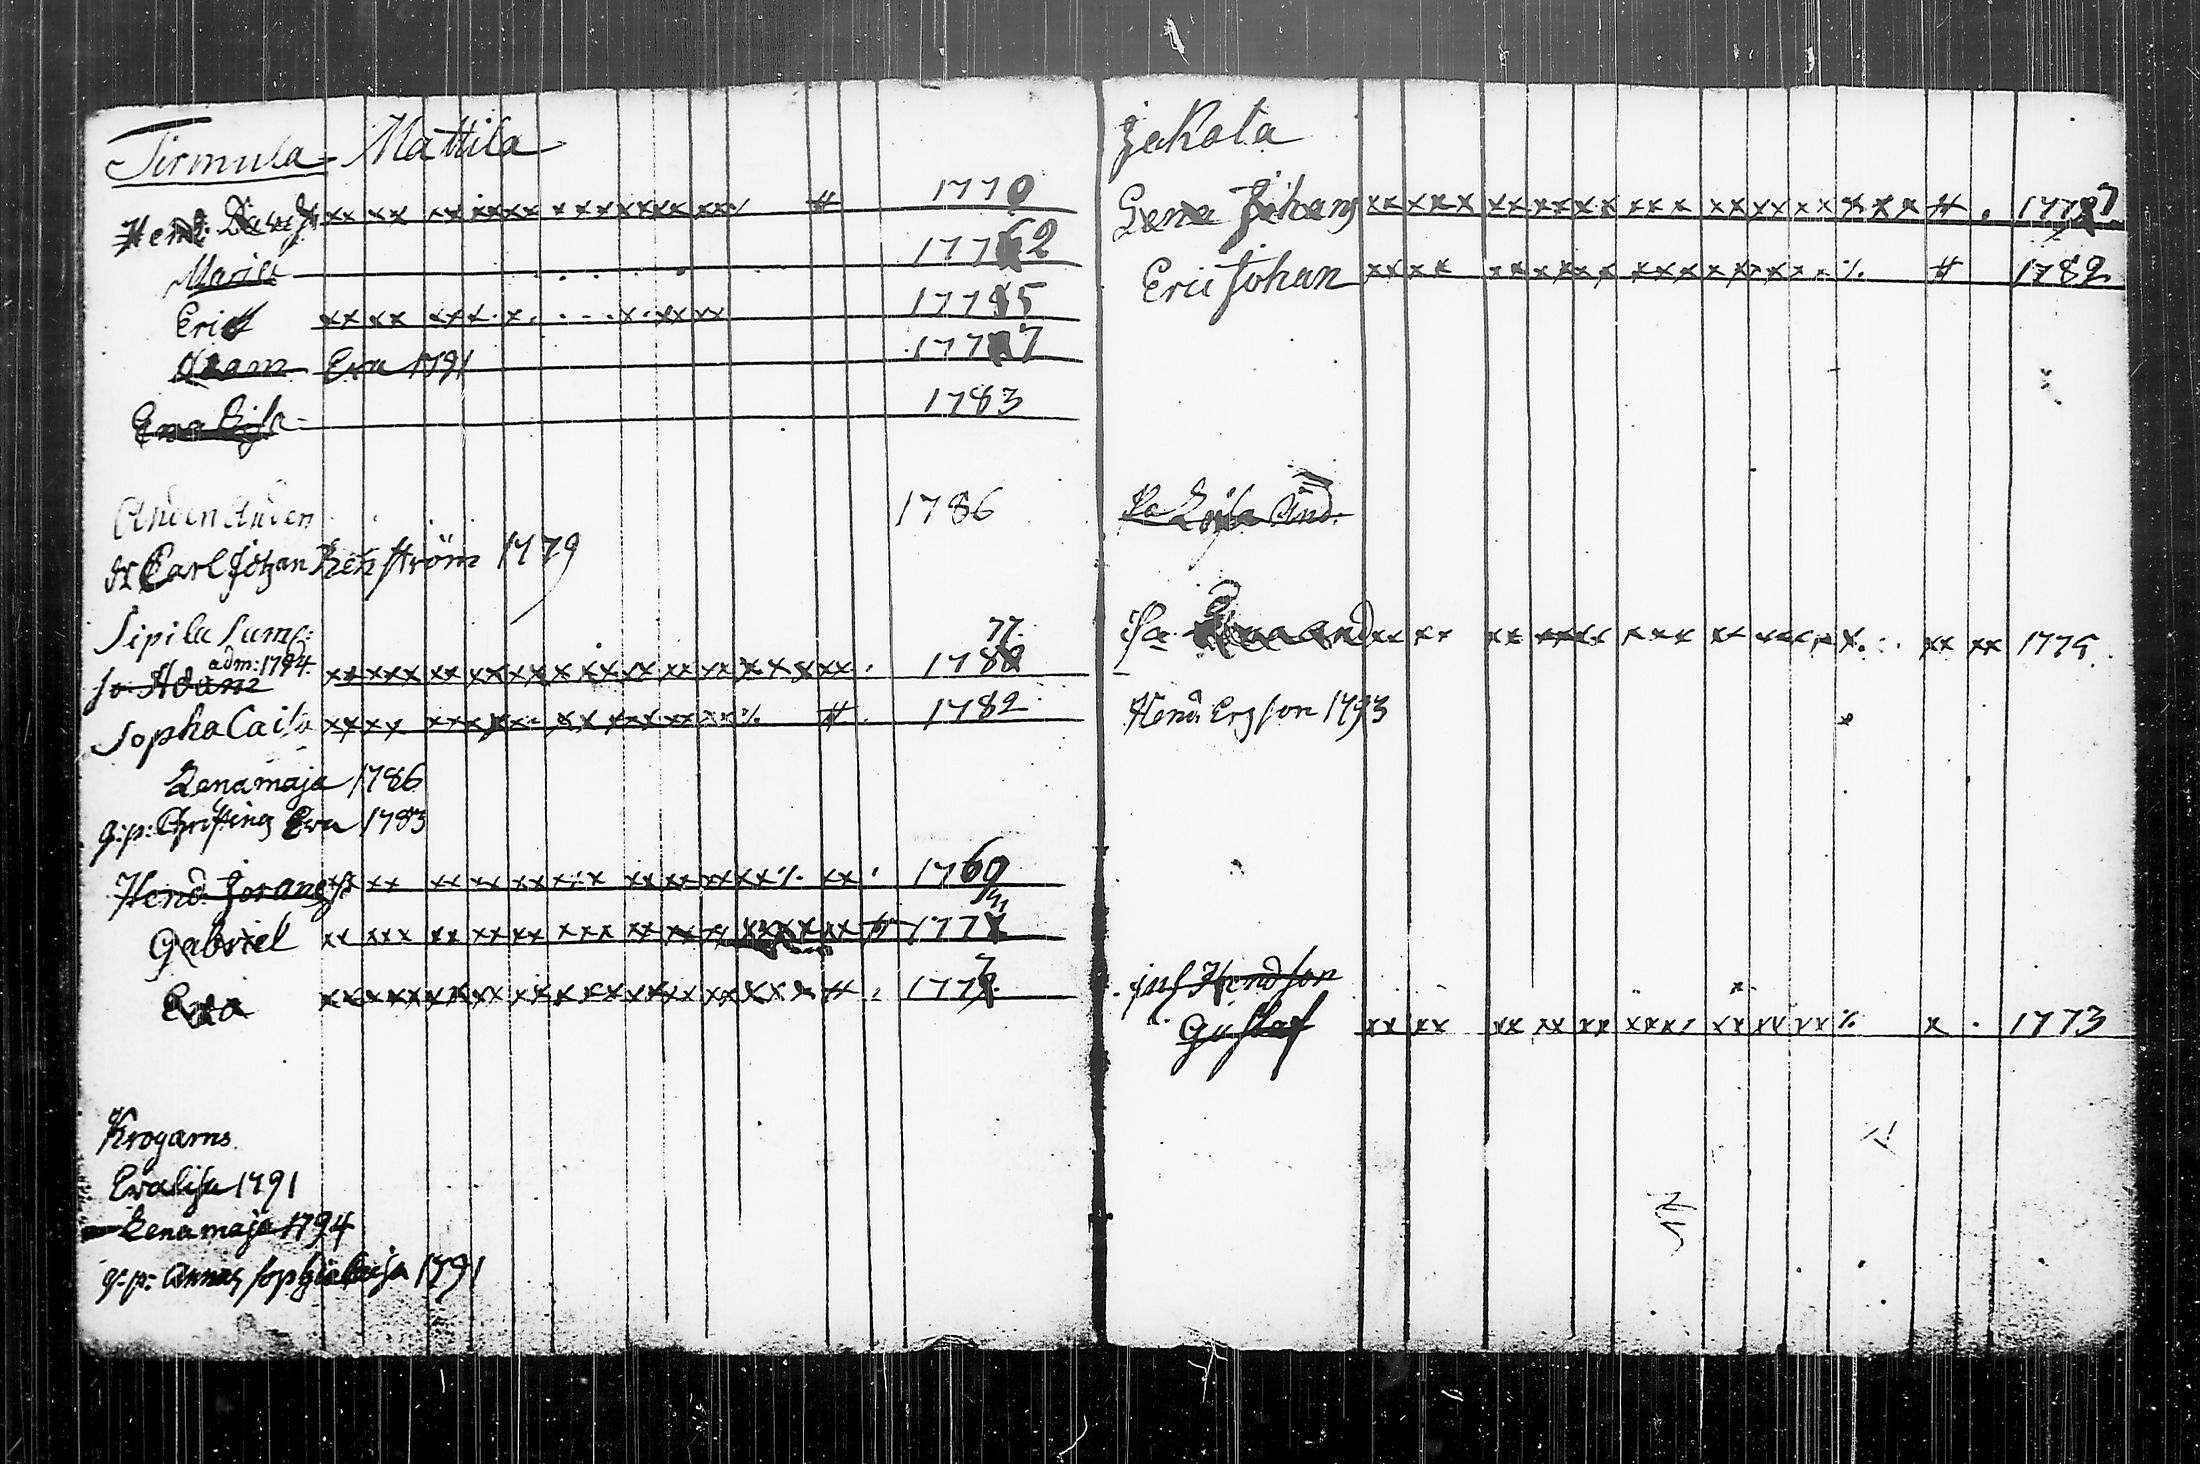 Tirmula Mattila
Hend: xx xx xx xxxx x x x xxxx xx % # 1770
Maria 17762
Erick xx xx xxx. x. . - . . x. xx xx 17785
Adam Eva 1791 1777
Eva Lisa 1783
Anders Anders 1786
Carl Johan Renström 1779
Sipila Sum:
adm: 1794 77.
so Adam xx xxxx xx xxxx xx xx xx xx xx x x x xx . 178
Sopha Caisa xx xx xxx x x xx xxx xx xx % # 1782
Lenamaja 1786
g:p: Christines Eva 1783
Hend: Jorans xx xx xx xx xx xxx xx xx xx xx % xx . 1769
Gabriel xx xxx xx xx xx xxx xx xx xx xxxx xx # 177
Eva xx xxxx xx xx xx x xx xx xx xx xx x x # . 1777
Krogarns
Evalisa 1791
Lenamaja 1794
g:p: Annas sophia 1791
Jakola
Lena Johans xx xxx xx xxxxx xxx xx xx xx x x x # . 1777
Eric Johan xx xx xx xx xx xxxx x xx x . % # 1782
Pa Lisa And:
Pa And xx xx xx xxxx xxx xx xxx x x. : . xx xx 1775
Hend: Ersson 1793
inh Hendson
Gustaf xx xx xx xx xx xxxx xx xx xx % x . 1773